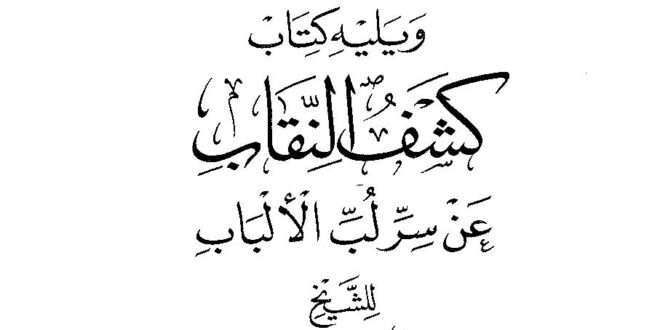 وَيَلِيْهِ كِتَابْ
كَشْفُ النِّقَابِ
عَنْ سِرِّ لُبِّ الْأَلْبَابِ
لِلشَّيْخِ